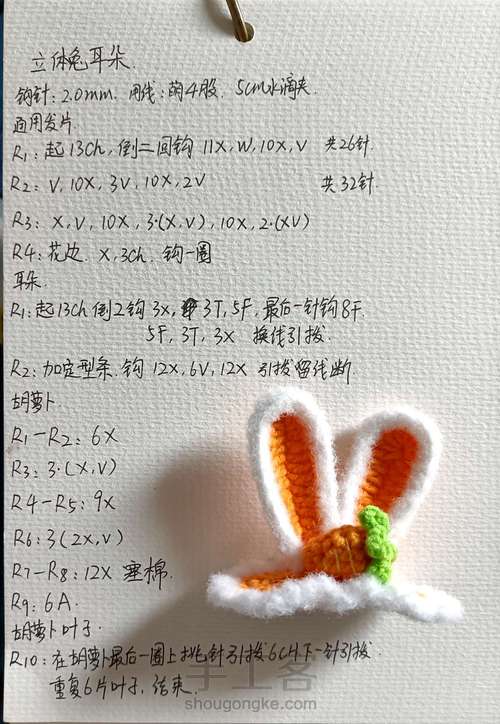 立体兔耳朵.
钩针:2.0mm. 用线:萌4股. 5cm水滴夹.
通用发片
R1:起13Ch,倒二回钩 11X,W,10X,V 共26针.
R2:V,10X,3V,10X,2V 共32针.
R3:X,V,10X,3·(X,V),10X,2·(XV)
R4:花边. X,3Ch. 钩一圈
耳朵.
R1:起13Ch倒2钩3X,3T,5F,最后一针钩8F.
5F,3T,3X 换线引拔.
R2:加定型条.钩12X,6V,12X 引拔留线断.
胡萝卜.
R1-R2:6X
R3:3·(X,V)
R4-R5:9X
R6:3(2X,V)
R7-R8:12X 塞棉.
R9:6A.
胡萝卜叶子.
R10:在胡萝卜最后一圈上挑针引拔6CH下一针引拔.
重复6片叶子,结束.
手工客
shougongke.com